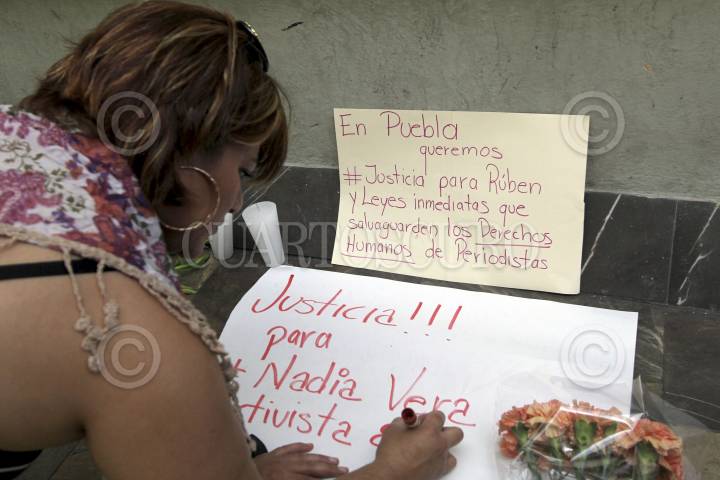 En Puebla
queremos
#Justicia para Rúben
y Leyes inmediatas que
salvaguarden los Derechos
Humanos de Periodistas
Justicia!!!
para
Nadia Vera
tivista
CUARTOSCURO